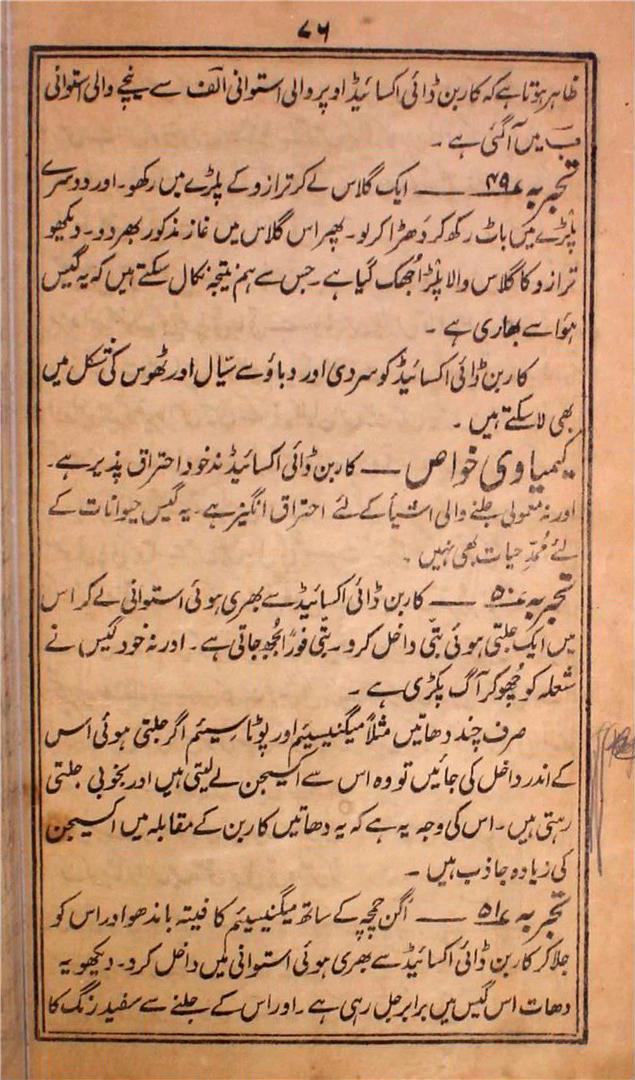 ۷۶
ظاہر ہوتا ہے کہ کاربن ڈائی اکسائیڈ اوپر والی استوانی الف سے نیچے والی استوانی
ب میں آگئی ہے ۔
تجربہ ۴۹ ـــ ایک گلاس لے کر ترازو کے پلڑے میں رکھو۔ اور دوسرے
پلڑے میں باٹ رکھ کر دھڑا کر لو۔ پھر اس گلاس میں غاز مذکور بھر دو۔ دیکھیو
ترازو کا گلاس والا پلڑا جھک گیا ہے ۔ جس سے ہم نتیجہ نکال سکتے ہیں کہ یہ گیس
ہوا سے بھاری ہے ۔
کاربن ڈائی اکسائیڈ کو سردی اور دباؤ سے سیّال اور ٹھوس کی شکل میں
بھی لا سکتے ہیں ۔
کیمیاوی خواص ـــ کاربن ڈائی اکسائیڈ نہ خود احتراق پذیر ہے ۔
اور نہ معمولی جلنے والی اشیأ کے لئے احتراق انگیز ہے ۔ یہ گیس حیوانات کے
لئے ممدِّ حیات بھی نہیں ۔
تجربہ ۵۰ ـــ کاربن ڈائی اکسائیڈ سے بھری ہوئی استوانی لے کر اس
میں ایک جلتی ہوئی بتّی داخل کرو ۔ بتّی فوراً بُجھ جاتی ہے ۔ اور نہ خود گیس نے
شعلہ کو چھو کر آگ پکڑی ہے ۔
صرف چند دھاتیں مثلاً میگنیسیئم اور پوٹاسیئم اگر جلتی ہوئی اس
کے اندر داخل کی جائیں تو وہ اس سے اکسیجن لے لیتی ہیں اور بخوبی جلتی
رہتی ہیں ۔ اس کی وجہ یہ ہے کہ یہ دھاتیں کاربن کے مقابلہ میں اکسیجن
کی زیادہ جاذب ہیں ۔
تجربہ ۵۱ ـــ اگن چمچہ کے ساتھ میگنیسیئم کا فیتہ باندھو اور اس کو
جلا کر کاربن ڈائی اکسائیڈ سے بھری ہوئی استوانی میں داخل کرد ۔ دیکھو یہ
دھات اس گیس میں برابر جل رہی ہے ۔ اور اس کے جلنے سے سفید رنگ کا